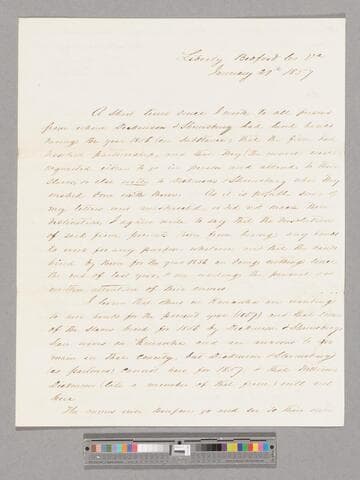 Liberty, Bedford Co Va
January 29th 1857
A short time since I wrote to all persons
from whom Dickinson & Shrewsbury had hired hands
during the year 1856 (in substance) that the firm had
dissolved partnership, and that they (the owners) were
requested either to go in person and attend to their
slaves, or else write to Dickinson & Shrewsbury what they
wished done with them. As it is possible some of
my letters was miscarried and not reach their
destination, I again write to say that the dissolution
of said firm prevents from having any hands
to work for any purpose whatever and that the hands
hired by them for the year 1856 are doing nothing since
the end of last year & are needing the personal or
written attention of their owners
I learn that others in Kanawha are wanting
to hire hands for the present year (1857) and that some
of the slaves hired for 1856 by Dickinson & Shrewsbury
are now in Kanawha and are anxious to re-
main in that county, but Dickinson & Shrewsbury
(as partners) cannot hire for 1857 & that William
Dickinson (late a member of that firm) will not
hire
The owners must therefore go and see to their